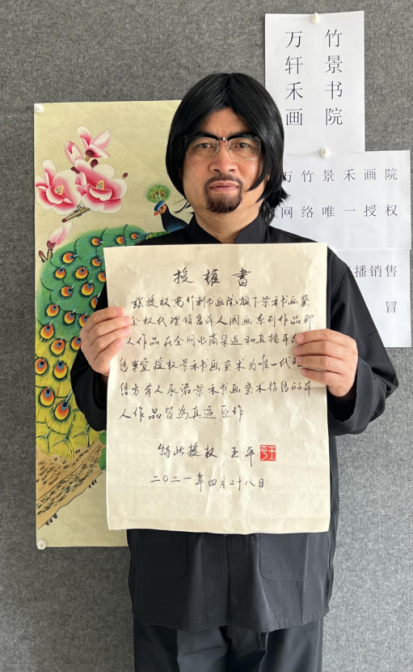 竹景书院
万轩禾画
万竹景禾画院
网络唯一授权
播销售
冒
授权书
兹授权竹轩书画院旗下景禾书画艺
全权代理销售本人国画系列作品即
人作品在全网电商渠道和直播平
售事宜授权景禾书画艺术为唯一代
售方本人承诺景禾书画艺术推售的本
人作品皆为真迹原作
特此授权 王平
二〇二一年四月二十八日